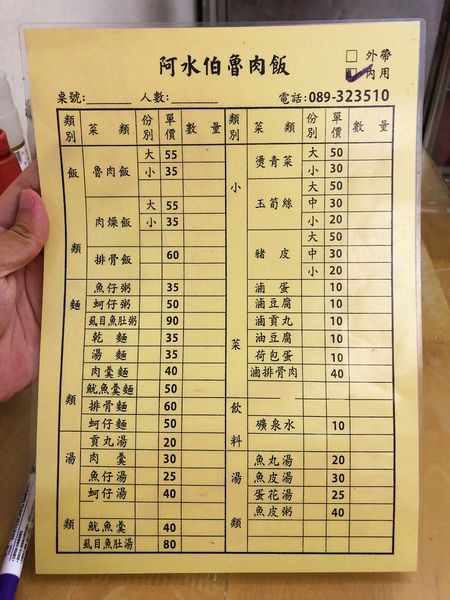 阿水伯魯肉飯
□ 外帶
□ 內用
桌號:______ 人數:______ 電話:089-323510
類別 菜類 份別 單價 數量 類別 菜類 份別 單價 數量
飯類
魯肉飯 大 55
小 35
肉燥飯 大 55
小 35
排骨飯 60
麵類
魚仔粥 35
蚵仔粥 50
虱目魚肚粥 90
乾麵 35
湯麵 35
肉羹麵 40
魷魚羹麵 50
排骨麵 60
蚵仔麵 50
湯類
貢丸湯 20
肉羹 30
魚仔湯 25
蚵仔湯 40
魷魚羹 40
虱目魚肚湯 80
小菜
燙青菜 大 50
小 30
玉筍絲 大 50
中 30
小 20
豬皮 大 50
中 30
小 20
滷蛋 10
滷豆腐 10
滷貢丸 10
油豆腐 10
荷包蛋 10
滷排骨肉 40
飲料
礦泉水 10
湯類
魚丸湯 20
魚皮湯 30
蛋花湯 25
魚皮粥 40